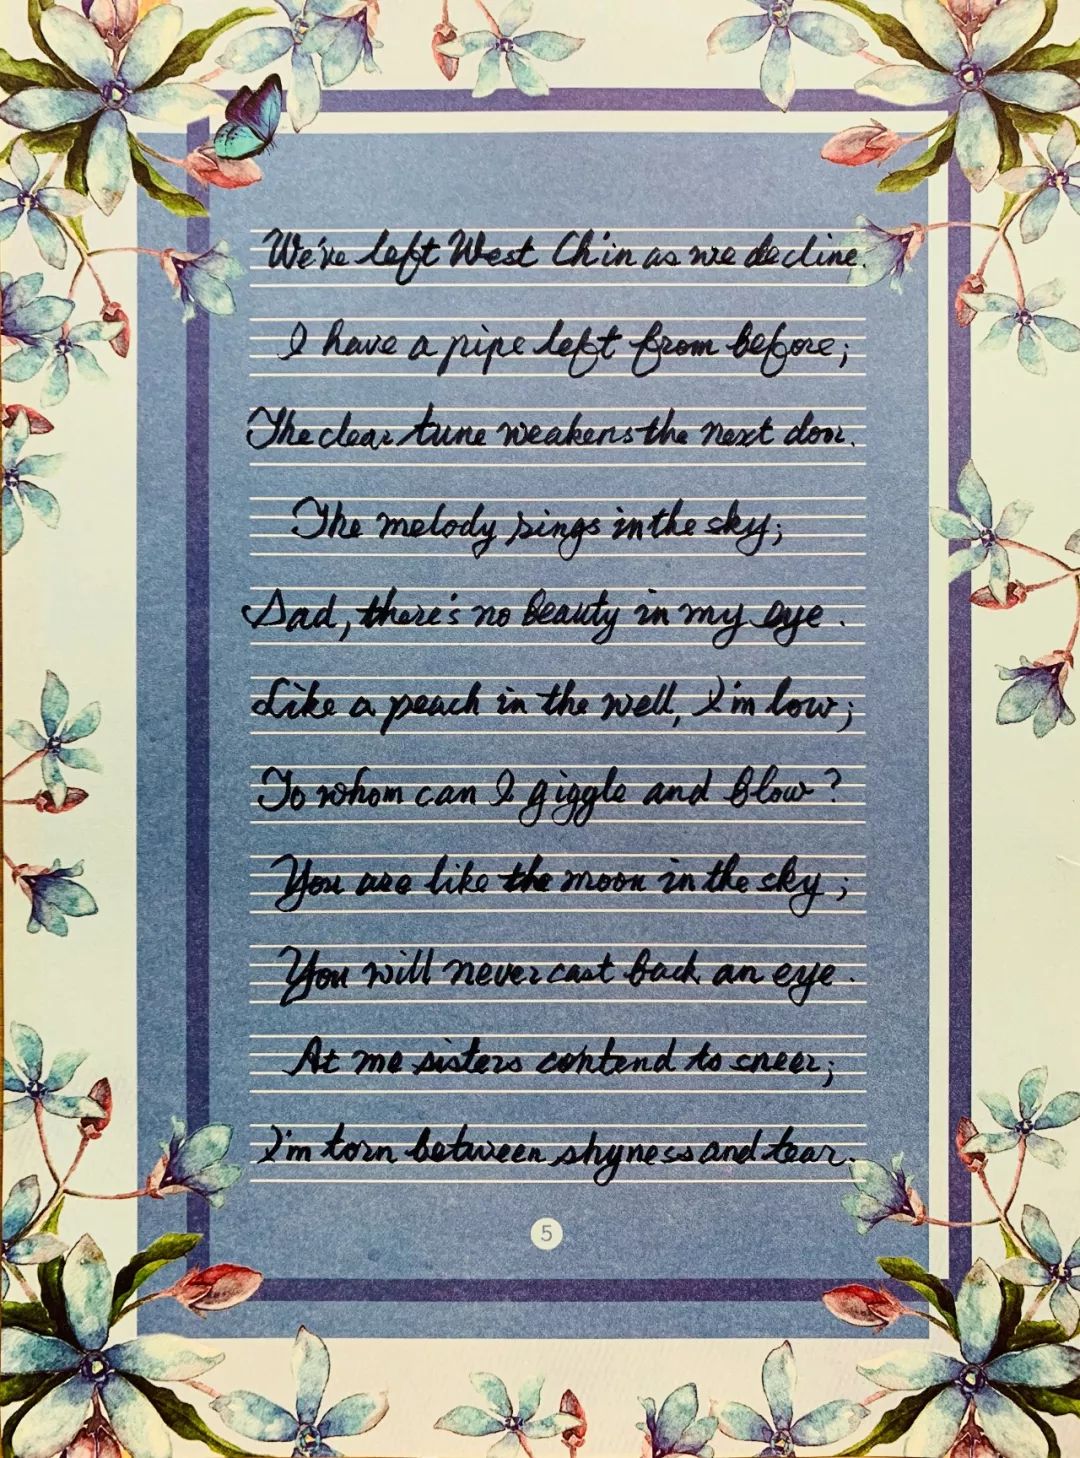 We've left West Ch'in as we decline.
I have a pipe left from before;
The clear tune weakens the next door.
The melody sings in the sky;
Sad, there's no beauty in my eye.
Like a peach in the well, I'm low;
To whom can I giggle and blow?
You are like the moon in the sky;
You will never cast back an eye.
At me sisters contend to sneer;
I'm torn between shyness and tear.
5